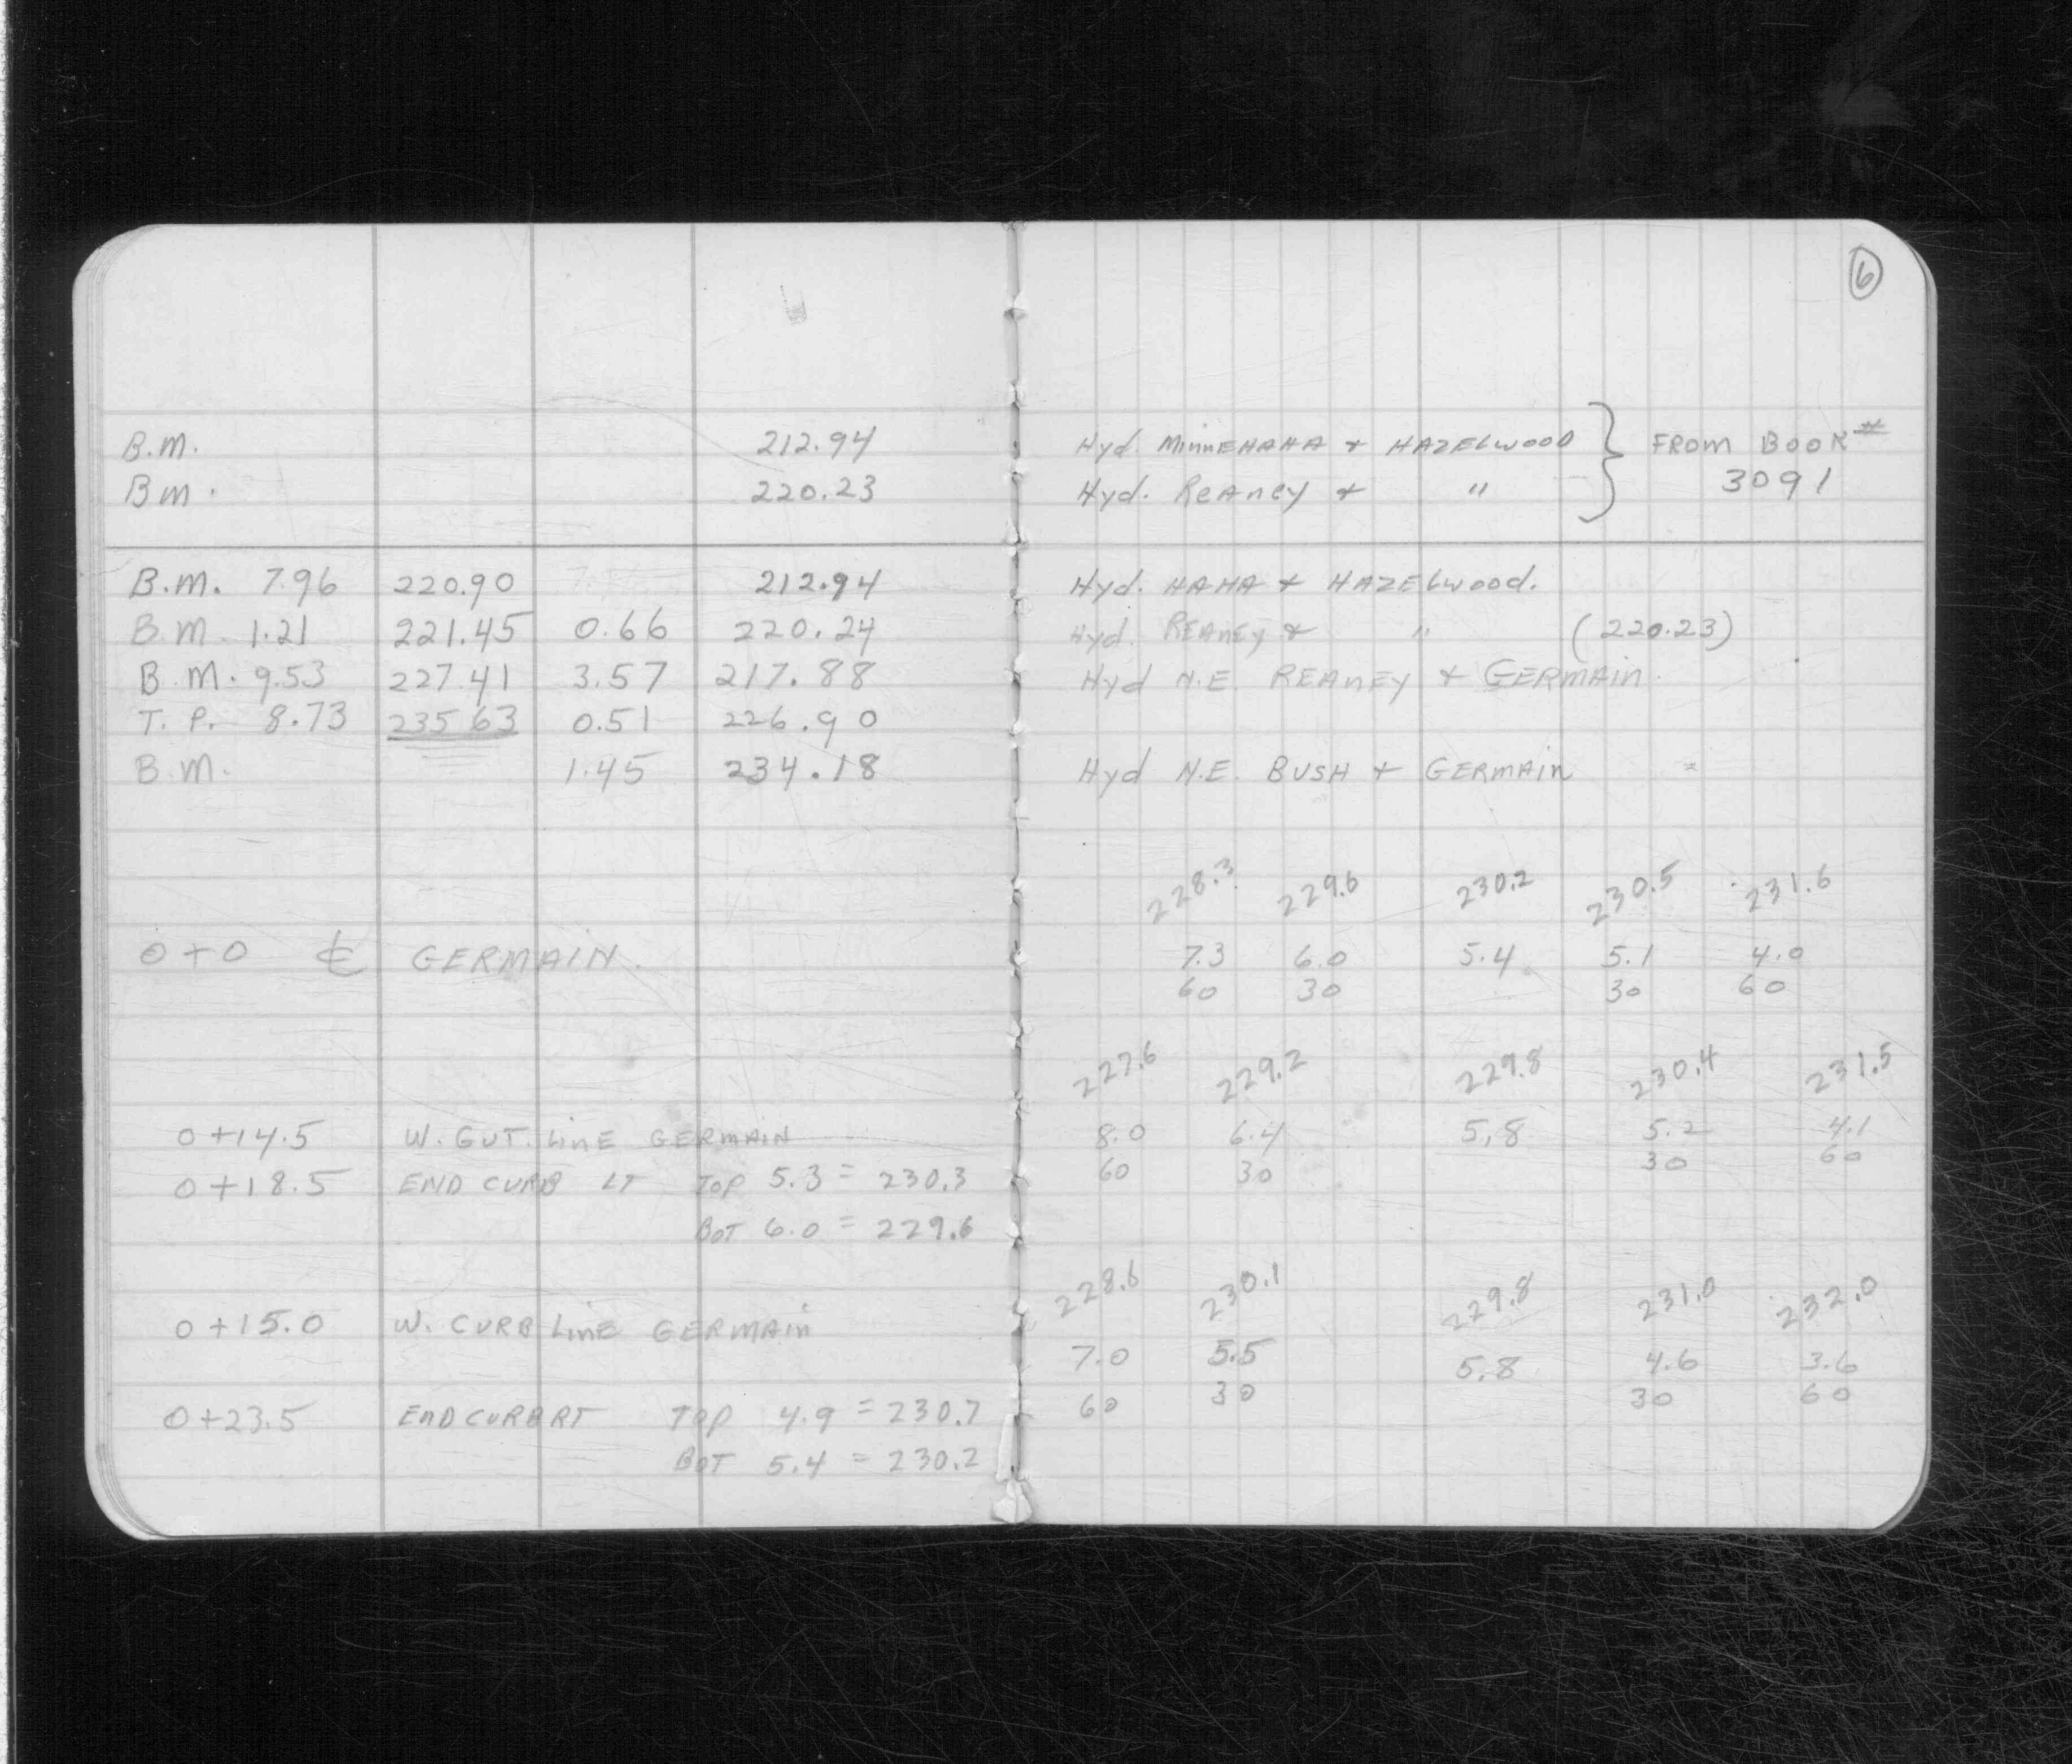 6
B.M. 212.94 Hyd. MINNEHAHA + HAZELWOOD } FROM BOOK #
BM. 220.23 Hyd. REANEY + " 3091
B.M. 7.96 220.90 212.94 Hyd. HAHA + HAZELWOOD.
B.M. 1.21 221.45 0.66 220.24 Hyd. REANEY + " (220.23)
B.M. 9.53 227.41 3.57 217.88 Hyd N.E. REANEY + GERMAIN.
T.P. 8.73 235.63 0.51 226.90
B.M. 1.45 234.18 Hyd N.E. BUSH + GERMAIN
228.3 229.6 230.2 230.5 231.6
0+0 ℄ GERMAIN. 7.3 6.0 5.4 5.1 4.0
60 30 30 60
227.6 229.2 229.8 230.4 231.5
0+14.5 W. GUT. LINE GERMAIN 8.0 6.4 5.8 5.2 4.1
60 30 30 60
0+18.5 END CURB LT TOP 5.3 = 230.3
BOT 6.0 = 229.6
228.6 230.1 229.8 231.0 232.0
0+15.0 W. CURB LINE GERMAIN 7.0 5.5 5.8 4.6 3.6
60 30 30 60
0+23.5 END CURB RT TOP 4.9 = 230.7
BOT 5.4 = 230.2